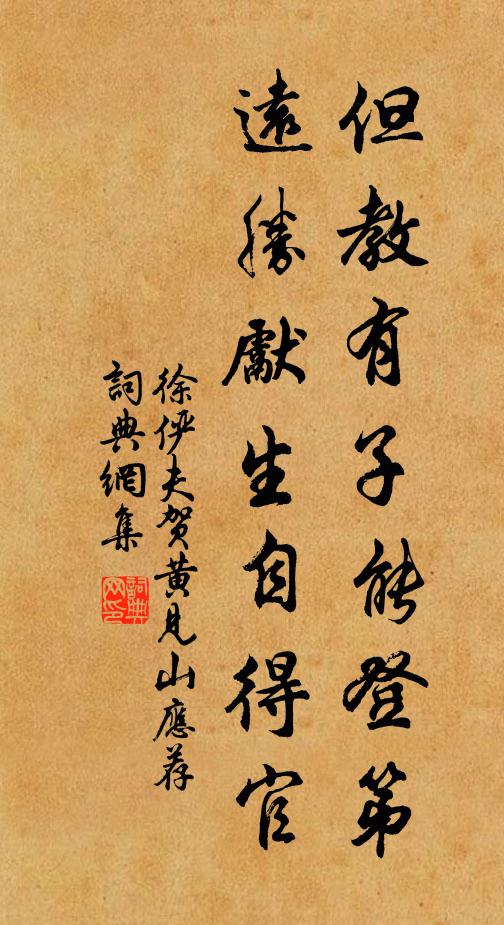 但教有子能登第
遠勝獻生自得官
徐伊夫贺黄見山應荐
詞典網集
詞典网印